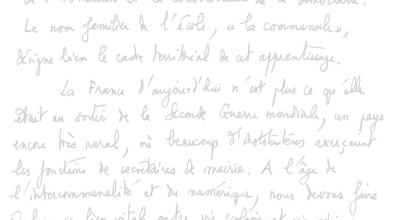 Le nom familier de l'école, « la communale »,
désigne bien le cadre territorial de cet apprentissage.
La France d'aujourd'hui n'est plus ce qu'elle
était au sortir de la Seconde Guerre mondiale, un pays
encore très rural, où beaucoup d'instituteurs exerçaient
les fonctions de secrétaires de mairie. A l'âge de
l'intercommunalité et du numérique, nous devons faire